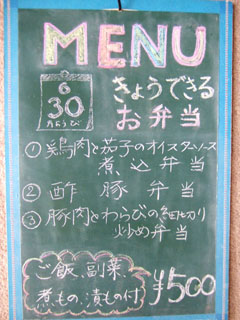 MENU
6
30
げつようび
きょうできる
お弁当
① 鶏肉と茄子のオイスターソース
煮込弁当
② 酢豚弁当
③ 豚肉とわらびの細切り
炒め弁当
ご飯、副菜
煮もの、漬もの付
¥500